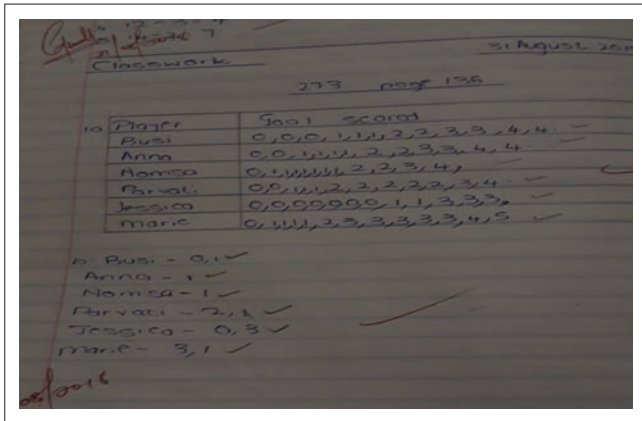 Classwork
31 August 201
273 page 135
1a Player Goal scored
Busi 0,0,0,1,1,1,2,2,3,3,4,4
Anna 0,0,1,1,1,1,2,2,3,3,4,4
Nomsa 0,1,1,1,1,1,1,1,2,2,3,4,
Parvati 0,0,1,1,1,2,2,2,2,2,3,4
Jessica 0,0,0,0,0,0,0,1,1,3,3,3,
Marie 0,1,1,1,1,2,3,3,3,3,3,4,5
b Busi - 0,1
Anna - 1
Nomsa - 1
Parvati - 2,1
Jessica - 0,3
marie - 3,1